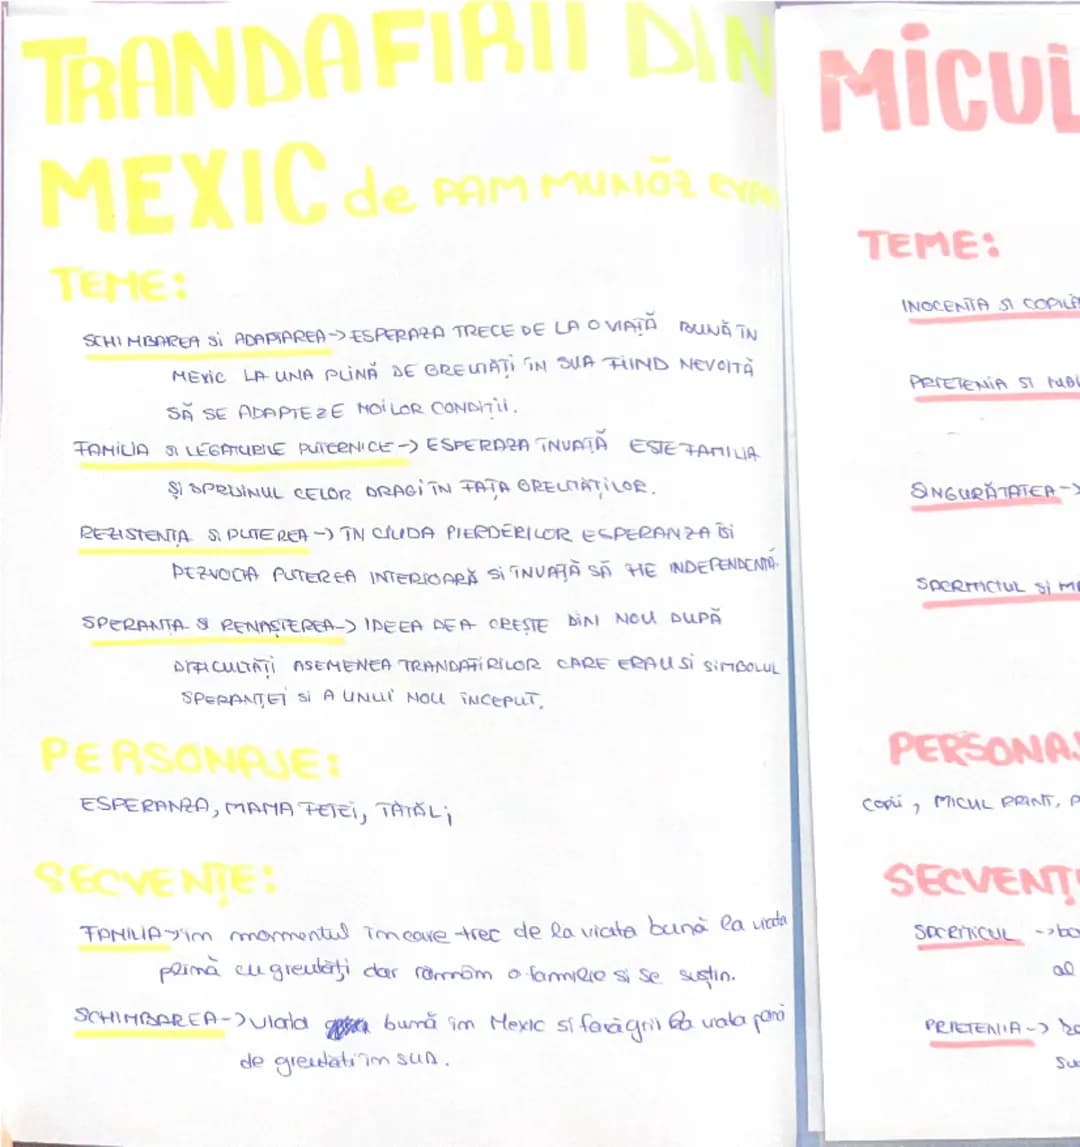 TRANDAFIRII DIN
MEXIC de PAM MUNÕZ RYAN
TEME:
SCHIMBAREA SI ADAPTAREA-> ESPERAZA TRECE DE LA O VIAȚĂ BUNĂ ÎN
MEXIC LA UNA PLINĂ DE GREUTĂȚI ÎN SUA FIIND NEVOITĂ
SĂ SE ADAPTEZE NOILOR CONDIȚII.
FAMILIA SI LEGATURILE PUTERNICE-> ESPERAZA ÎNVAȚĂ ESTE FAMILIA
ȘI SPRIJINUL CELOR DRAGI ÎN FAȚA GREUTĂȚILOR.
REZISTENȚA SI PUTEREA-> ÎN CIUDA PIERDERILOR ESPERANZA ÎSI
DEZVOLTĂ PUTEREA INTERIOARĂ SI ÎNVAȚĂ SĂ FIE INDEPENDENTĂ.
SPERANȚA SI RENAȘTEREA-> IDEEA DE A CREȘTE DIN NOU DUPĂ
DIFICULTĂȚI ASEMENEA TRANDAFIRILOR CARE ERAU SI SIMBOLUL
SPERANȚEI SI A UNUI NOU ÎNCEPUT.
PERSONAJE:
ESPERANZA, MAMA FETEI, TATĂL;
SECVENȚE:
FAMILIA->în momentul în care trec de la viata bună la viata
plină cu greutăți dar rămân o familie si se susțin.
SCHIMBAREA-> viata bună în Mexic si fară griji la viata plină
de greutati în SUA.
MICUL
TEME:
INOCENTA SI COPILĂ
PRIETENIA SI IUBI
SINGURĂTATEA->
SACRIFICIUL SI MA
PERSONAJ
Copii, MICUL PRINT, P
SECVENȚE
SACRIFICIUL ->
al
PRIETENIA->
Su